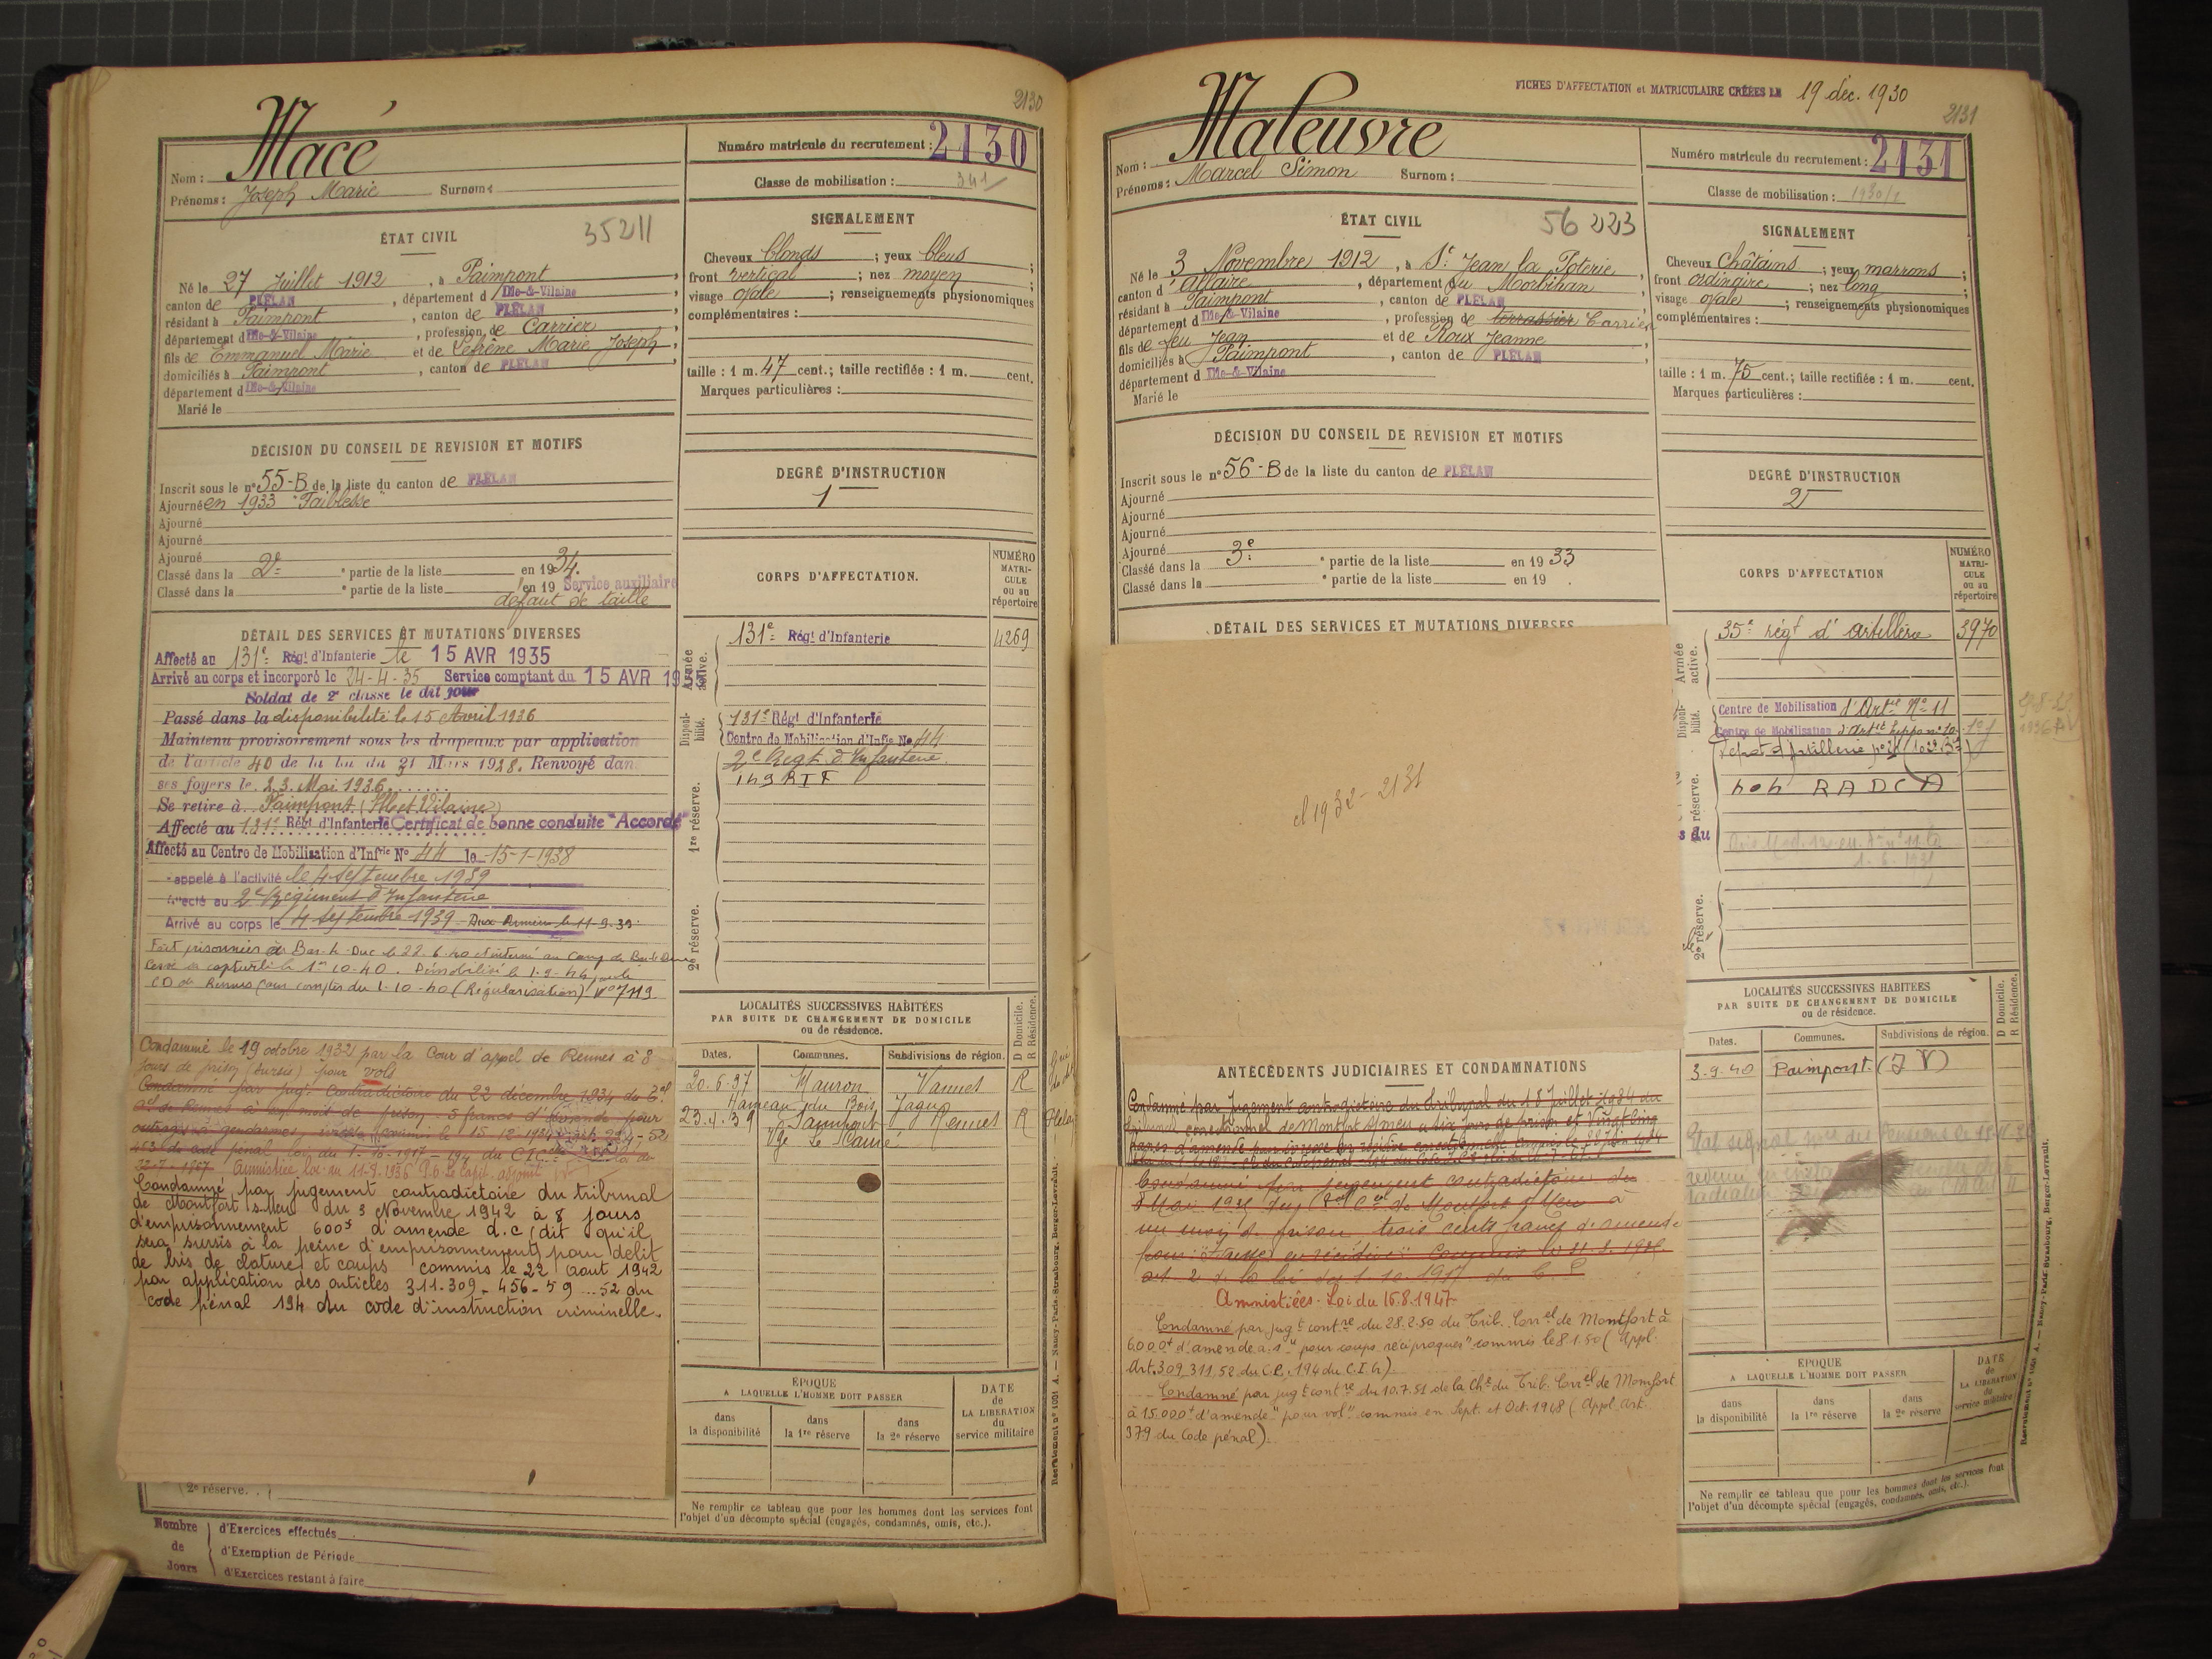 2130
Macé
Nom :
Prénoms : Joseph Marie Surnom :
Numéro matricule du recrutement : 2130
Classe de mobilisation : 34/1
ÉTAT CIVIL
35211
Né le 27 Juillet 1912, à Paimpont,
canton de PLÉLAN, département d Ille-&-Vilaine
résidant à Paimpont, canton de PLÉLAN
département d Ille-&-Vilaine, profession de Carrier
fils de Emmanuel Marie et de Lefrène Marie Joseph,
domiciliés à Paimpont, canton de PLÉLAN
département d Ille-&-Vilaine
Marié le
SIGNALEMENT
Cheveux blonds ; yeux bleus ;
front vertical ; nez moyen ;
visage ovale ; renseignements physionomiques
complémentaires :
taille : 1 m. 47 cent.; taille rectifiée : 1 m. cent.
Marques particulières :
DÉCISION DU CONSEIL DE REVISION ET MOTIFS
Inscrit sous le n° 55-B de la liste du canton de PLÉLAN
Ajourné en 1933 "Faiblesse"
Ajourné
Ajourné
Ajourné
Classé dans la 2e partie de la liste en 1934.
Classé dans la partie de la liste en 19 Service auxiliaire
défaut de taille
DEGRÉ D'INSTRUCTION
1
CORPS D'AFFECTATION.
NUMÉRO MATRICULE ou au répertoire
DÉTAIL DES SERVICES ET MUTATIONS DIVERSES
Affecté au 131e Régt d'Infanterie le 15 AVR 1935
Arrivé au corps et incorporé le 24-4-35 Service comptant du 15 AVR 19
Soldat de 2e classe le dit jour
Passé dans la disponibilité le 15 Avril 1936
Maintenu provisoirement sous les drapeaux par application
de l'article 40 de la Loi du 31 Mars 1928. Renvoyé dans
ses foyers le 23 Mai 1936
Se retire à Paimpont (Ille et Vilaine)
Affecté au 131e Régt d'Infanterie Certificat de bonne conduite "Accordé"
Affecté au Centre de Mobilisation d'Infrie N° 44 le 15-1-1938
appelé à l'activité le 4 septembre 1939
2e Régiment d'Infanterie
Arrivé au corps le 4 septembre 1939 Aux Armées le 11-9-39
Fait prisonnier à Bar-le-Duc le 22.6.40 et interné au Camp de Bar le Duc
1er 10-40. Démobilisé le 1-9-44 par le
CD de Rennes pour compter du 1-10-40 (Régularisation) N° 7119
Armée active.
131e Régt d'Infanterie 4269
Disponibilité.
131e Régt d'Infanterie
Centre de Mobilisation d'Infie N° 44
1re réserve.
2e Regt d'Infanterie
149 RIF
2e réserve.
Condamné le 19 octobre 1932 par la Cour d'appel de Rennes à 8
jours de prison (sursis) pour vols
Condamné par jugt Contradictoire du 22 décembre 1934 du
de Rennes à un mois de prison 5 francs d'amende pour
outrages à gendarmes ivresse commis le 15-12-1934
Amnistiée loi du 11-8-1936
Condamné par jugement contradictoire du tribunal
de Montfort s-Meu du 3 Novembre 1942 à 8 jours
d'emprisonnement 600f d'amende d.c (dit qu'il
sera sursis à la peine d'emprisonnement) pour délit
de bris de cloture et coups commis le 22 Aout 1942
par application des articles 311.309_456-59...52 du
code pénal 194 du code d'instruction criminelle.
2e réserve.
Nombre de Jours
d'Exercices effectués
d'Exemption de Période
d'Exercices restant à faire
LOCALITÉS SUCCESSIVES HABITÉES
PAR SUITE DE CHANGEMENT DE DOMICILE
ou de résidence.
D Domicile. R Résidence.
Dates. Communes. Subdivisions de région.
20.6.37 Mauron Vannes R
Hameau du Bois Jagu
23.4.39 Paimpont Rennes R
Vge Le Cannée
ÉPOQUE
A LAQUELLE L'HOMME DOIT PASSER
DATE de LA LIBÉRATION du service militaire
dans la disponibilité
dans la 1re réserve
dans la 2e réserve
Ne remplir ce tableau que pour les hommes dont les services font
l'objet d'un décompte spécial (engagés, condamnés, omis, etc.).
FICHES D'AFFECTATION et MATRICULAIRE CRÉÉES LE 19 déc. 1930
2131
Maleuvre
Nom :
Prénoms : Marcel Simon Surnom :
Numéro matricule du recrutement : 2131
Classe de mobilisation : 1930/2
ÉTAT CIVIL
56 223
Né le 3 Novembre 1912, à St Jean la Poterie,
canton d'Allaire, département du Morbihan,
résidant à Paimpont, canton de PLÉLAN
département d Ille-&-Vilaine, profession de terrassier Carrier
fils de feu Jean et de Roux Jeanne
domiciliés à Paimpont, canton de PLÉLAN
département d Ille-&-Vilaine
Marié le
SIGNALEMENT
Cheveux châtains ; yeux marrons ;
front ordinaire ; nez long ;
visage ovale ; renseignements physionomiques
complémentaires :
taille : 1 m. 75 cent.; taille rectifiée : 1 m. cent.
Marques particulières :
DÉCISION DU CONSEIL DE REVISION ET MOTIFS
Inscrit sous le n° 56-B de la liste du canton de PLÉLAN
Ajourné
Ajourné
Ajourné
Ajourné
Classé dans la 3e partie de la liste en 1933
Classé dans la partie de la liste en 19 .
DEGRÉ D'INSTRUCTION
2
DÉTAIL DES SERVICES ET MUTATIONS DIVERSES
cl 1932 - 2131
CORPS D'AFFECTATION
NUMÉRO MATRICULE ou au répertoire
Armée active.
35e régt d'artillerie 3970
Disponibilité.
Centre de Mobilisation d'Artie N° 11
Centre de Mobilisation d'Artie hippo n° 10
404 RADCA
réserve.
2e réserve.
ANTÉCÉDENTS JUDICIAIRES ET CONDAMNATIONS
Condamné par jugement contradictoire du tribunal du 18 Juillet 1934 du
correctionnel de Montfort s/Meu à six jours de prison et Vingt cinq
francs d'amende pour ivresse en récidive
Condamné par jugement contradictoire du
8 Mai 1935 du de Montfort s/Meu à
un mois de prison trois cents francs d'amende
Amnistiées. Loi du 16.8.1947
Condamné par jugt contre du 28.2.50 du Trib. Correl de Montfort à
6.000f d'amende a.s "pour coups réciproques" commis le 8.1.50 (Appl.
Art. 309, 311, 52 du C.P, 194 du C.I.C).
Condamné par jugt contre du 10.7.51 de la Che du Trib. Correl de Montfort
à 15.000f d'amende "pour vol" commis en Sept. et Oct. 1948 (Appl. Art.
379 du Code pénal).
LOCALITÉS SUCCESSIVES HABITÉES
PAR SUITE DE CHANGEMENT DE DOMICILE
ou de résidence.
D Domicile. R Résidence.
Dates. Communes. Subdivisions de région.
3-9-40 Paimpont. (I V)
ÉPOQUE
A LAQUELLE L'HOMME DOIT PASSER
DATE de LA LIBÉRATION du service militaire
dans la disponibilité
dans la 1re réserve
dans la 2e réserve
Ne remplir ce tableau que pour les hommes dont les services font
l'objet d'un décompte spécial (engagés, condamnés, omis, etc.).